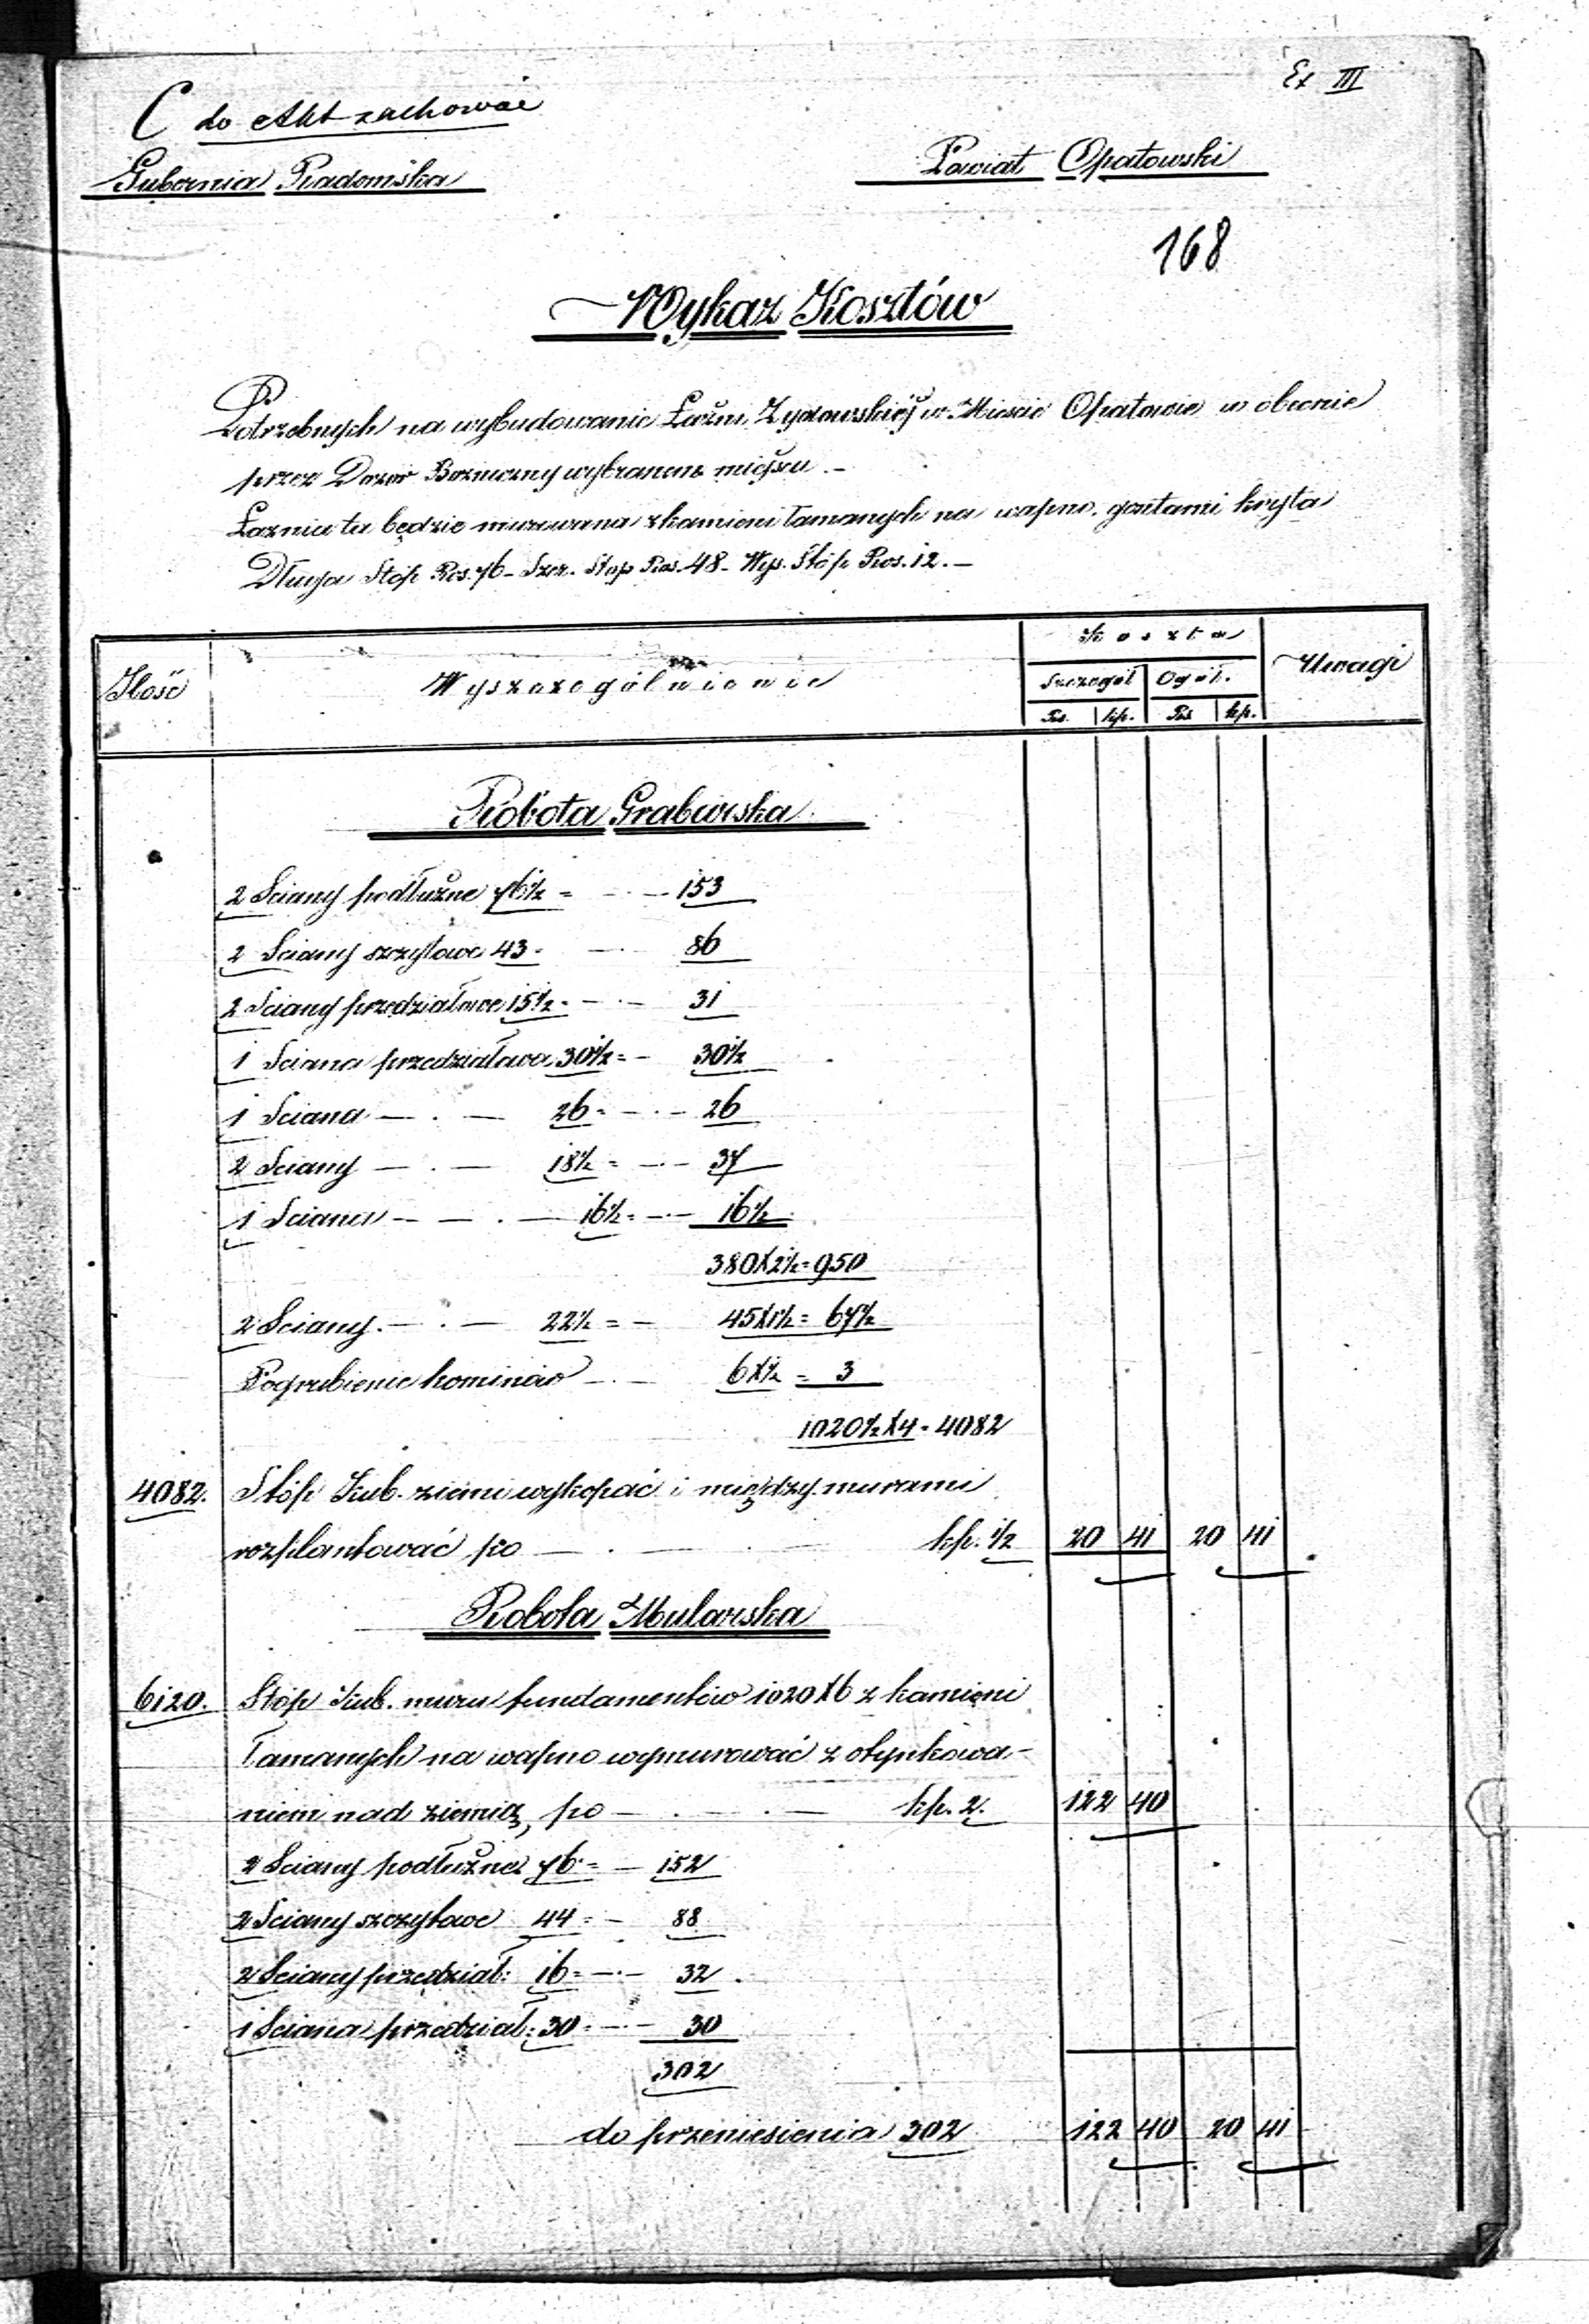 Ex III
C do Akt zachować
Gubernia Radomska
Powiat Opatowski
168
Wykaz Kosztów
Potrzebnych na wybudowanie Łaźni Żydowskiéj w Mieście Opatowie w obecnie
przez Dozór Bożniczny wybranem miejscu.–
Łaznia ta będzie murowana z kamieni łamanych na wapno, gontami kryta
Długa Stóp Ros. 76 – Szer. Stop Ros. 48 – Wys. Stóp Ros. 12.–
Ilość
Wyszczególnienie
Koszta
Uwagi
Szczegół Ogół.
Rs. kp. Rs kp.
Robota Grabarska
2 Sciany podłużne 76½ = – . – 153
2 Sciany szczytowe 43 = – . 86
2 Sciany przedziałowe 15½ = – . – 31
1 Sciana przedziałowa 30½ = – 30½
1 Sciana – . – 26 = – . – 26
2 Sciany – . – 18½ = – . – 37
1 Sciana – – . – 16½ = – . – 16½
380X2½ = 950
2 Sciany. – . – 22½ = – 45X1½ = 67½
Pogrubienie kominów – . – 6X½ = 3
1020½X4 = 4082
4082. Stóp Kub. ziemi wykopać i między murami
rozplantować po – . – . – kp. ½ 20 41 20 41
Robota Mularska
6120. Stóp Kub. muru fundamentów 1020X6 z kamieni
łamanych na wapno wymurować z otynkowa–
niem nad ziemią, po – . – . – kp. 2. 122 40
2 Sciany podłużne 76 = – 152
2 Sciany szczytowe 44 = – 88
2 Sciany przedział: 16 = – . – 32
1 Sciana przedział: 30 = – . – 30
302
do przeniesienia 302 122 40 20 41